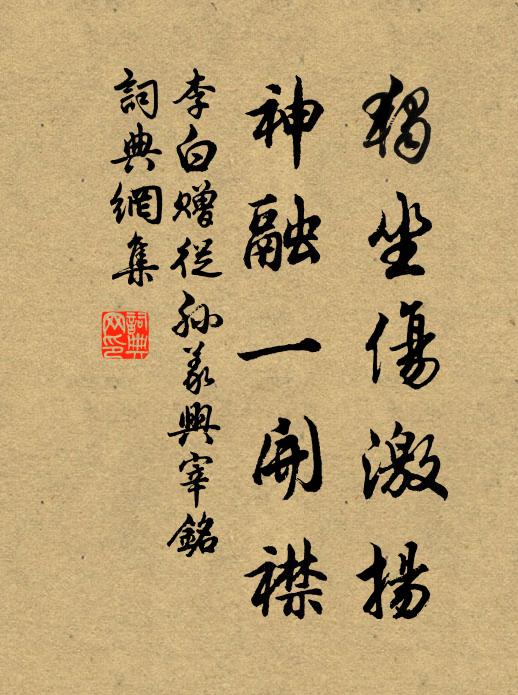 獨坐傷激揚
神融一開襟
李白贈從孫義興宰銘
詞典網集
詞典
网印